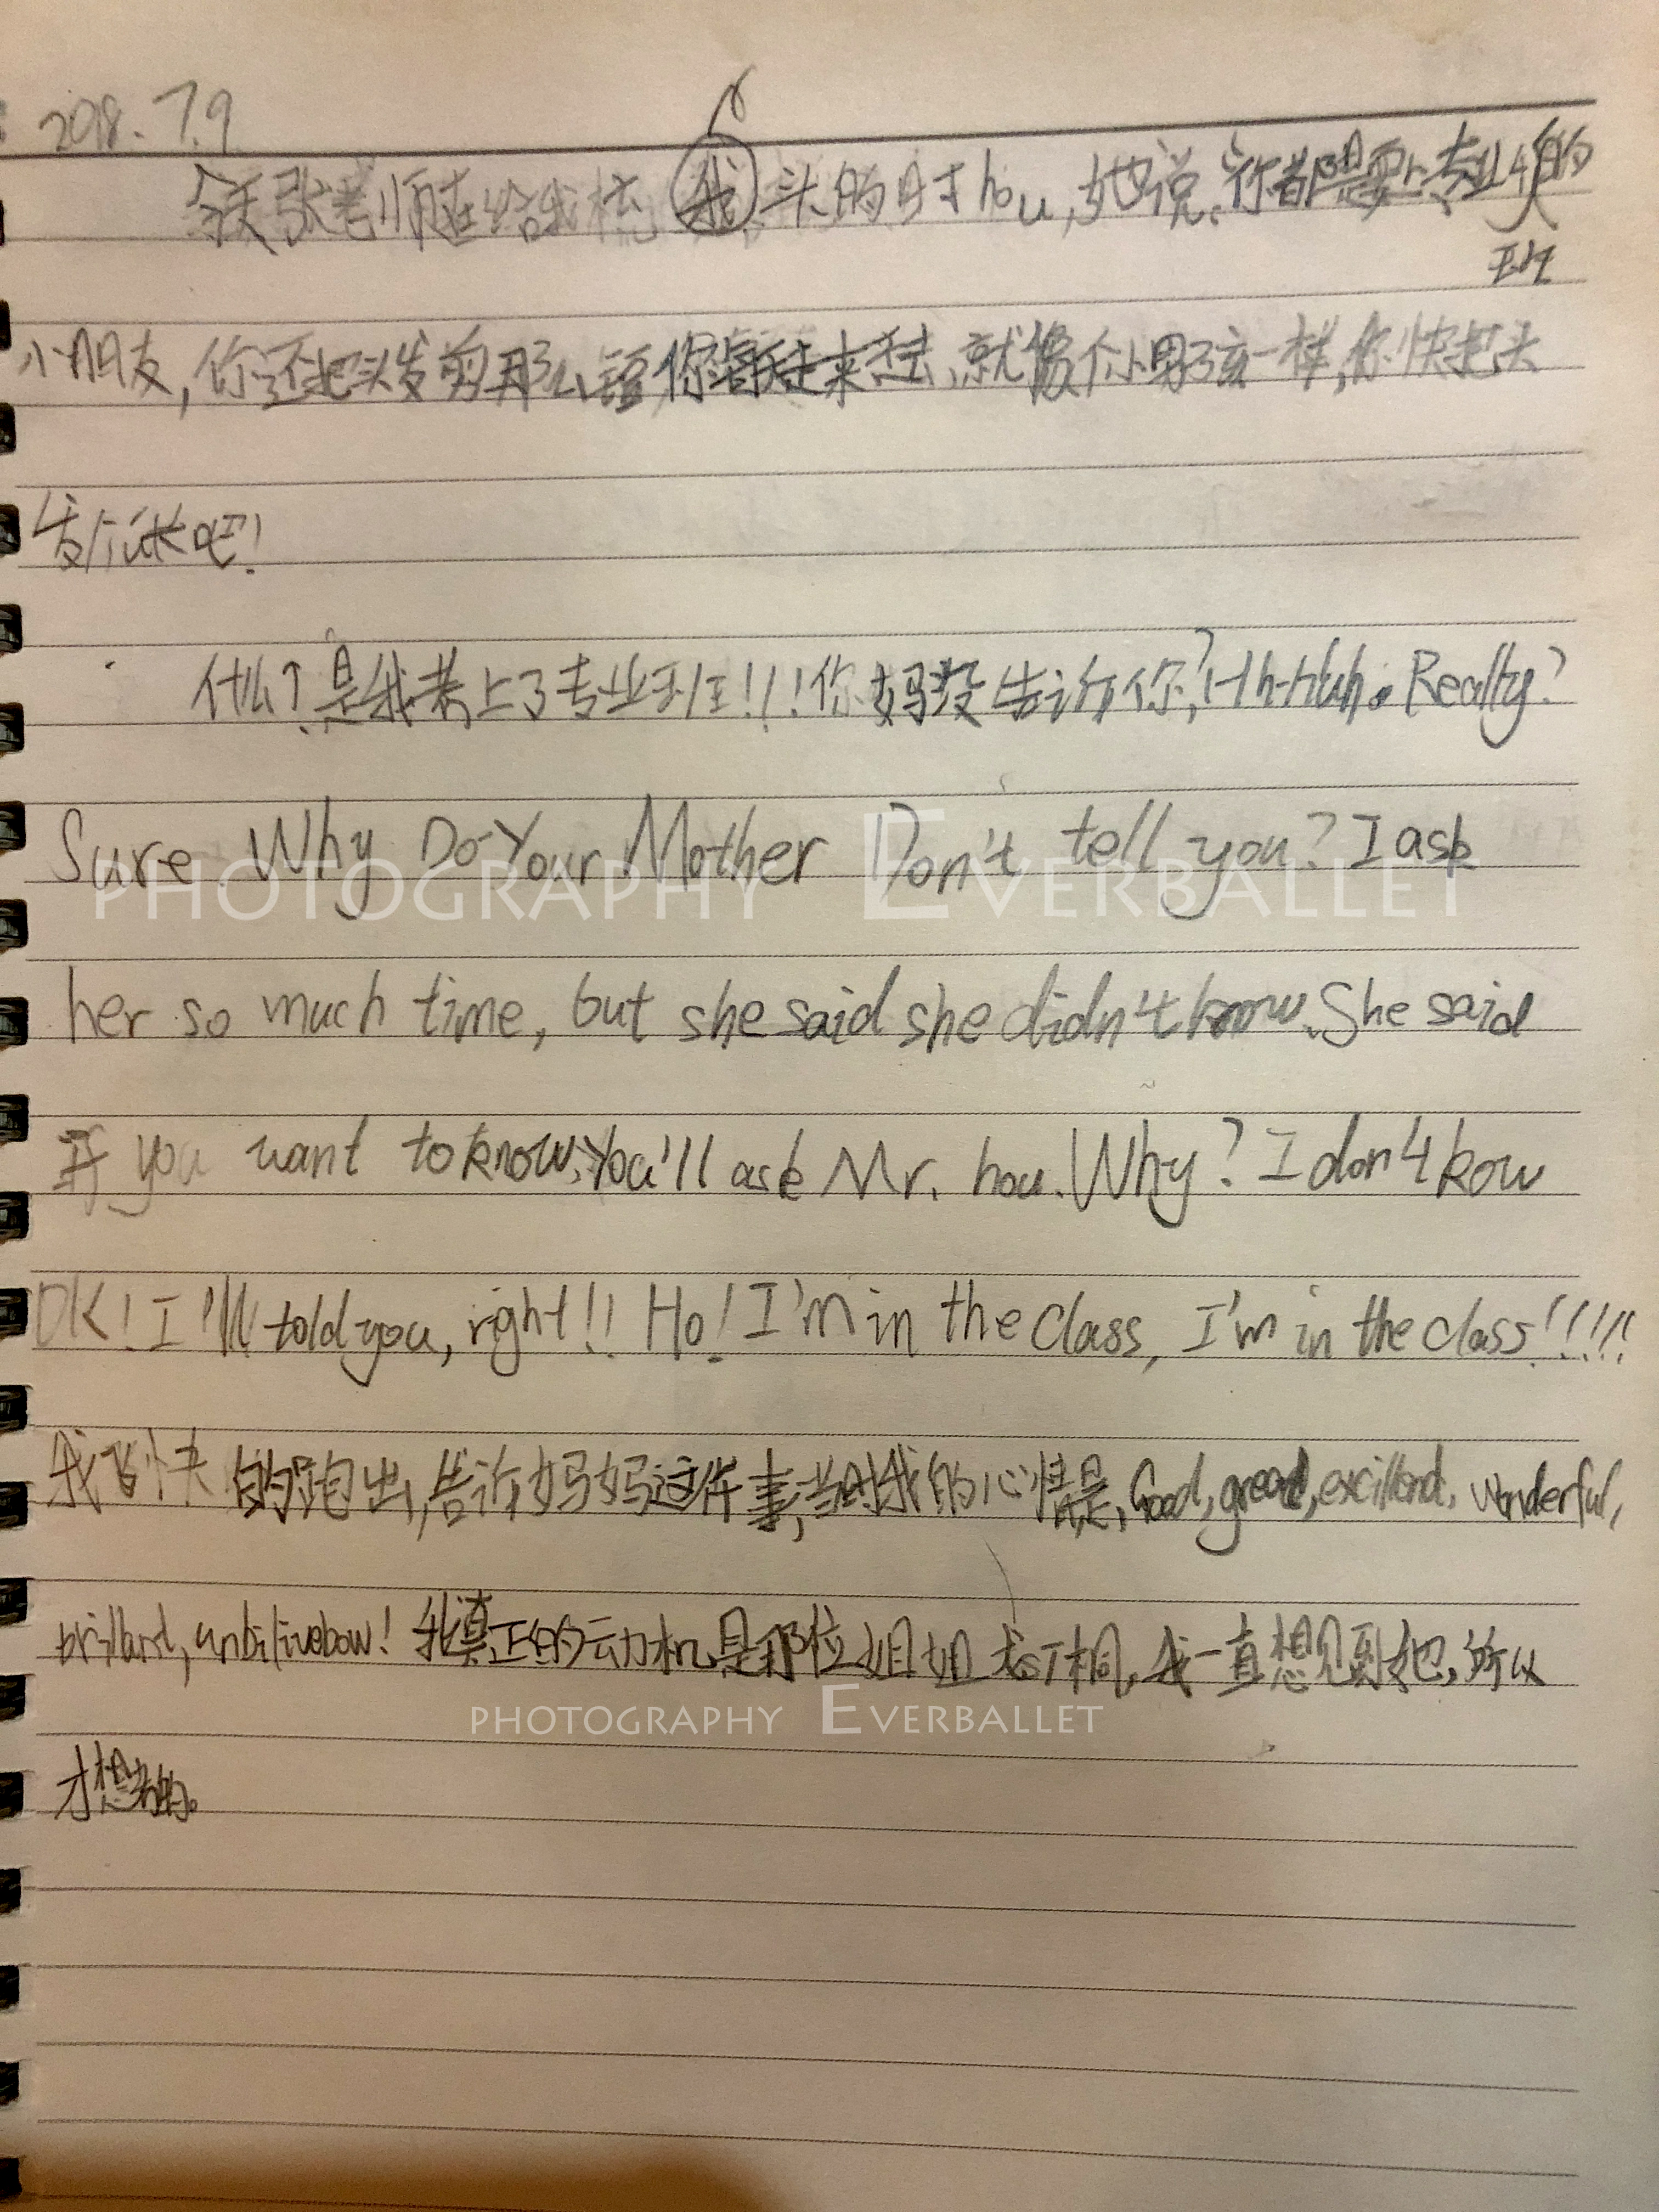 2018.7.9
今天张老师在给我梳头的时hou,她说:你都是要上专业的
班
小朋友,你还把头发剪那么短,你就像个小男孩一样,你快把头
发留长吧!
什么?是我考上了专业班!!!你妈没告诉你?Hh-Huh. Really?
Sure. Why Do Your Mother Don't tell you? I ask
her so much time, but she said she didn't know. She said
if you want to know, You'll ask Mr. hou. Why? I don't kow
OK! I'll told you, right!! Ho! I'm in the class, I'm in the class!!!!!
我飞快的跑出,告诉妈妈这件事,当时我的心情是,Good, great, excilland, wonderful,
brilland, unbilivebow! 我真正的动机是那位姐姐 我一直想见到她,所以
才想考的。
PHOTOGRAPHY EVERBALLET
PHOTOGRAPHY EVERBALLET